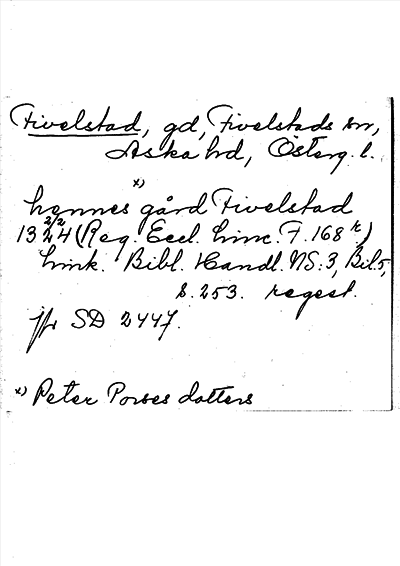 Fivelstad, gd, Fivelstads sn,
Aska hd, Österg. l.
x)
hennes gård Fivelstad
13 2/2 24 (Reg. Eccl. Linc. F. 168 r)
Link. Bibl. Handl. NS:3, Bil. 5,
s. 253. regest.
jfr SD 2447.
x) Peter Porses dotters